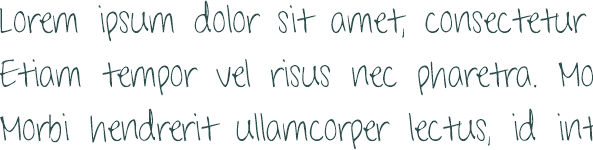 Lorem ipsum dolor sit amet, consectetur
Etiam tempor vel risus nec pharetra. Mo
Morbi hendrerit ullamcorper lectus, id int